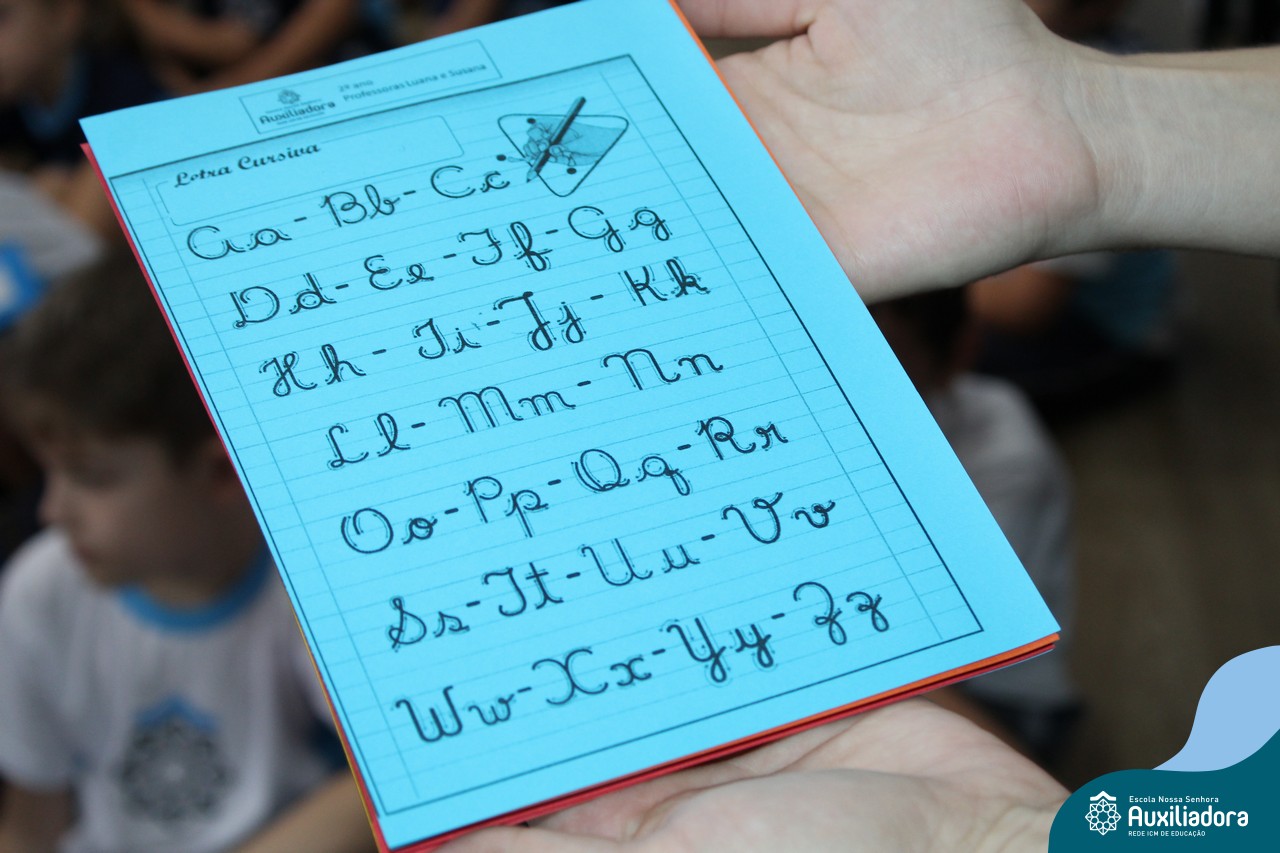 Auxiliadora
2º ano
Professoras Luana e Susana
Letra Cursiva
Aa - Bb - Cc
Dd - Ee - Ff - Gg
Hh - Ii - Jj - Kk
Ll - Mm - Nn
Oo - Pp - Qq - Rr
Ss - Tt - Uu - Vv
Ww - Xx - Yy - Zz
Escola Nossa Senhora
Auxiliadora
REDE ICM DE EDUCAÇÃO